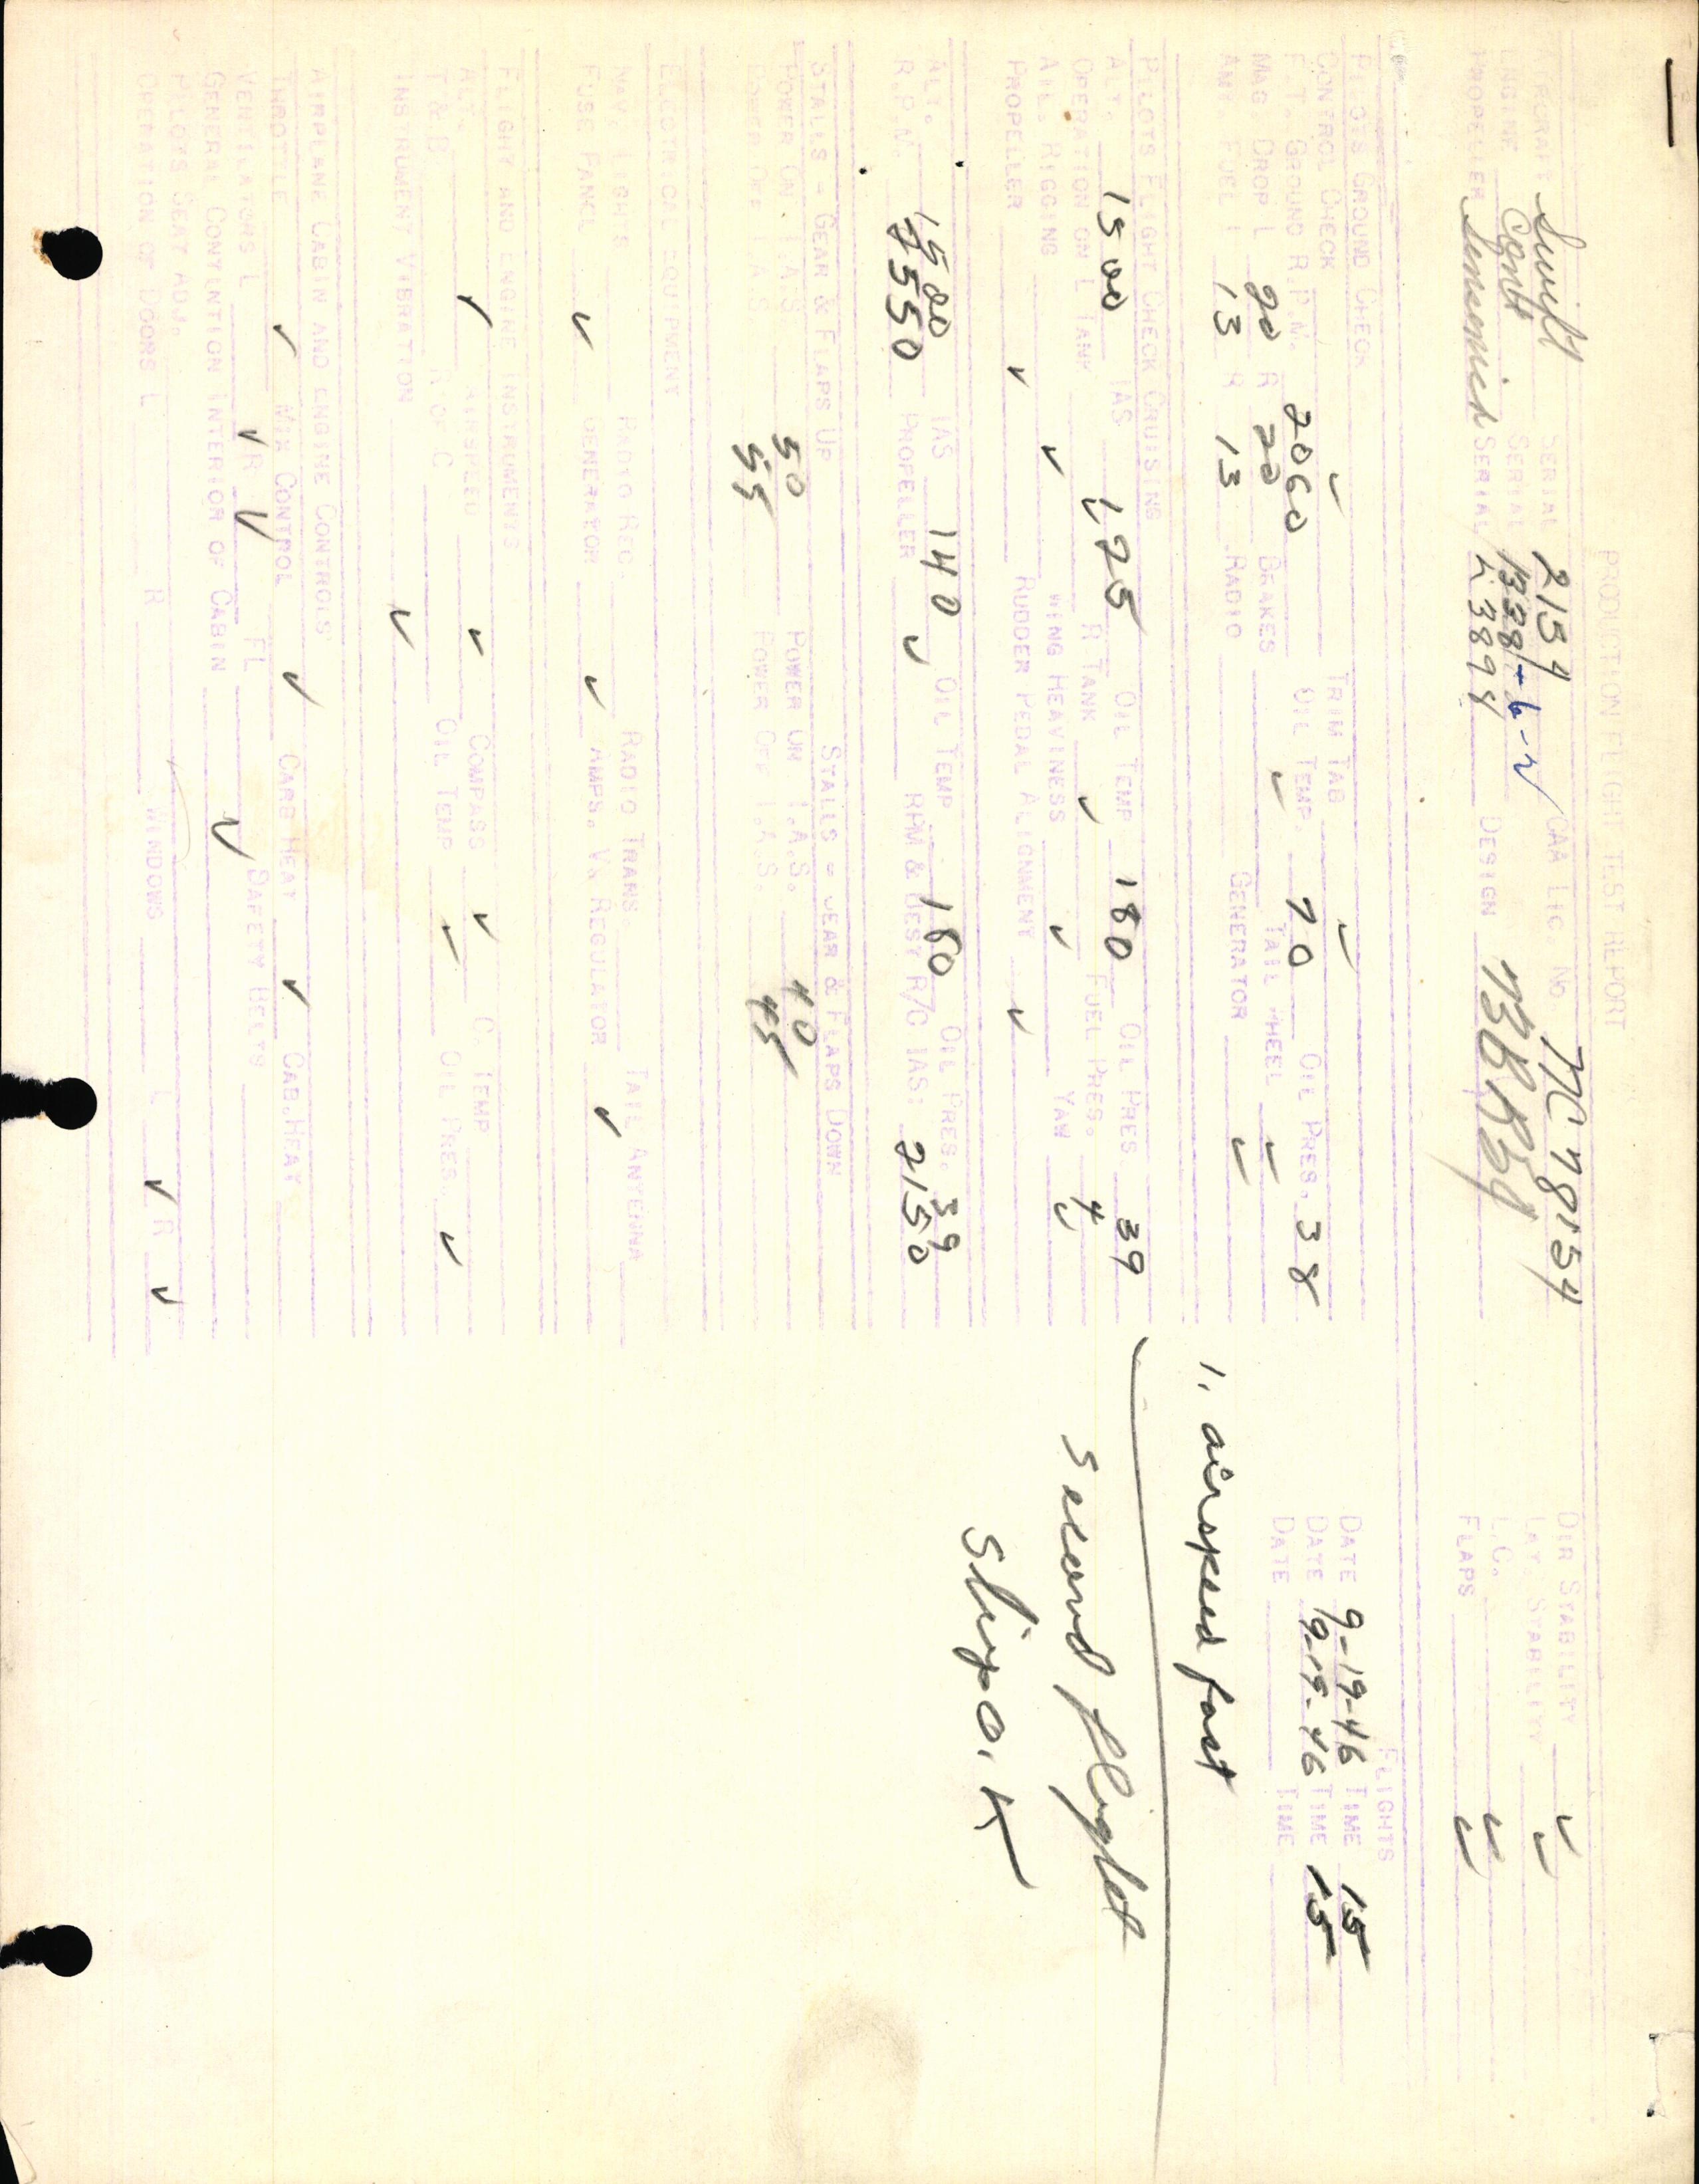 PRODUCTION FLIGHT TEST REPORT
AIRCRAFT Swift SERIAL 2154 CAA LIC NO. NC 78154
ENGINE Cont SERIAL
PROPELLER Sensenich SERIAL DESIGN
DIR STABILITY ✓
LAT. STABILITY ✓
L.G. ✓
FLAPS ✓
PILOTS GROUND CHECK
CONTROL CHECK ✓ TRIM TAB ✓
F.T. GROUND R.P.N. 2060 OIL TEMP. 70 OIL PRES. 38
MAG. DROP L 90 R 20 BRAKES ✓ TAIL WHEEL ✓
AMT. FUEL L 13 R 13 RADIO GENERATOR ✓
FLIGHTS
DATE 9-19-46 TIME 15
DATE 9-19-46 TIME 15
DATE TIME
PILOTS FLIGHT CHECK CRUISING
ALT. 1500 IAS 125 OIL TEMP. 180 OIL PRES 39
OPERATION ON L TANK R TANK ✓ FUEL PRES. 4
AIL. RIGGING ✓ WING HEAVINESS ✓ YAW ✓
PROPELLER ✓ RUDDER PEDAL ALIGNMENT ✓
ALT. 1500 IAS 140 OIL TEMP 180 OIL PRES. 39
R.P.N. 2550 PROPELLER ✓ RPM & BEST R/C IAS: 2150
STALLS - GEAR & FLAPS UP STALLS = GEAR & FLAPS DOWN
POWER ON I.A.S 50 POWER ON I.A.S. 40
POWER OFF I.A.S 55 POWER OFF I.A.S. 45
ELECTRICAL EQUIPMENT
NAV. LIGHTS RADIO REC. RADIO TRANS. TAIL ANTENNA
FUSE PANEL ✓ GENERATOR ✓ AMPS. V. REGULATOR ✓
FLIGHT AND ENGINE INSTRUMENTS
ALT. ✓ AIRSPEED ✓ COMPASS ✓ C. TEMP
T & B R OF C OIL TEMP ✓ OIL PRES. ✓
INSTRUMENT VIBRATION ✓
AIRPLANE CABIN AND ENGINE CONTROLS
THROTTLE ✓ MIX CONTROL ✓ CARB HEAT ✓ CAB.HEAT
VENTILATORS L ✓ R ✓ FL SAFETY BELTS
GENERAL CONTENTION INTERIOR OF CABIN ✓
PILOTS SEAT ADJ.
OPERATION OF DOORS L R WINDOWS L ✓ R ✓
1. airspeed fast
second flight
ship O.K